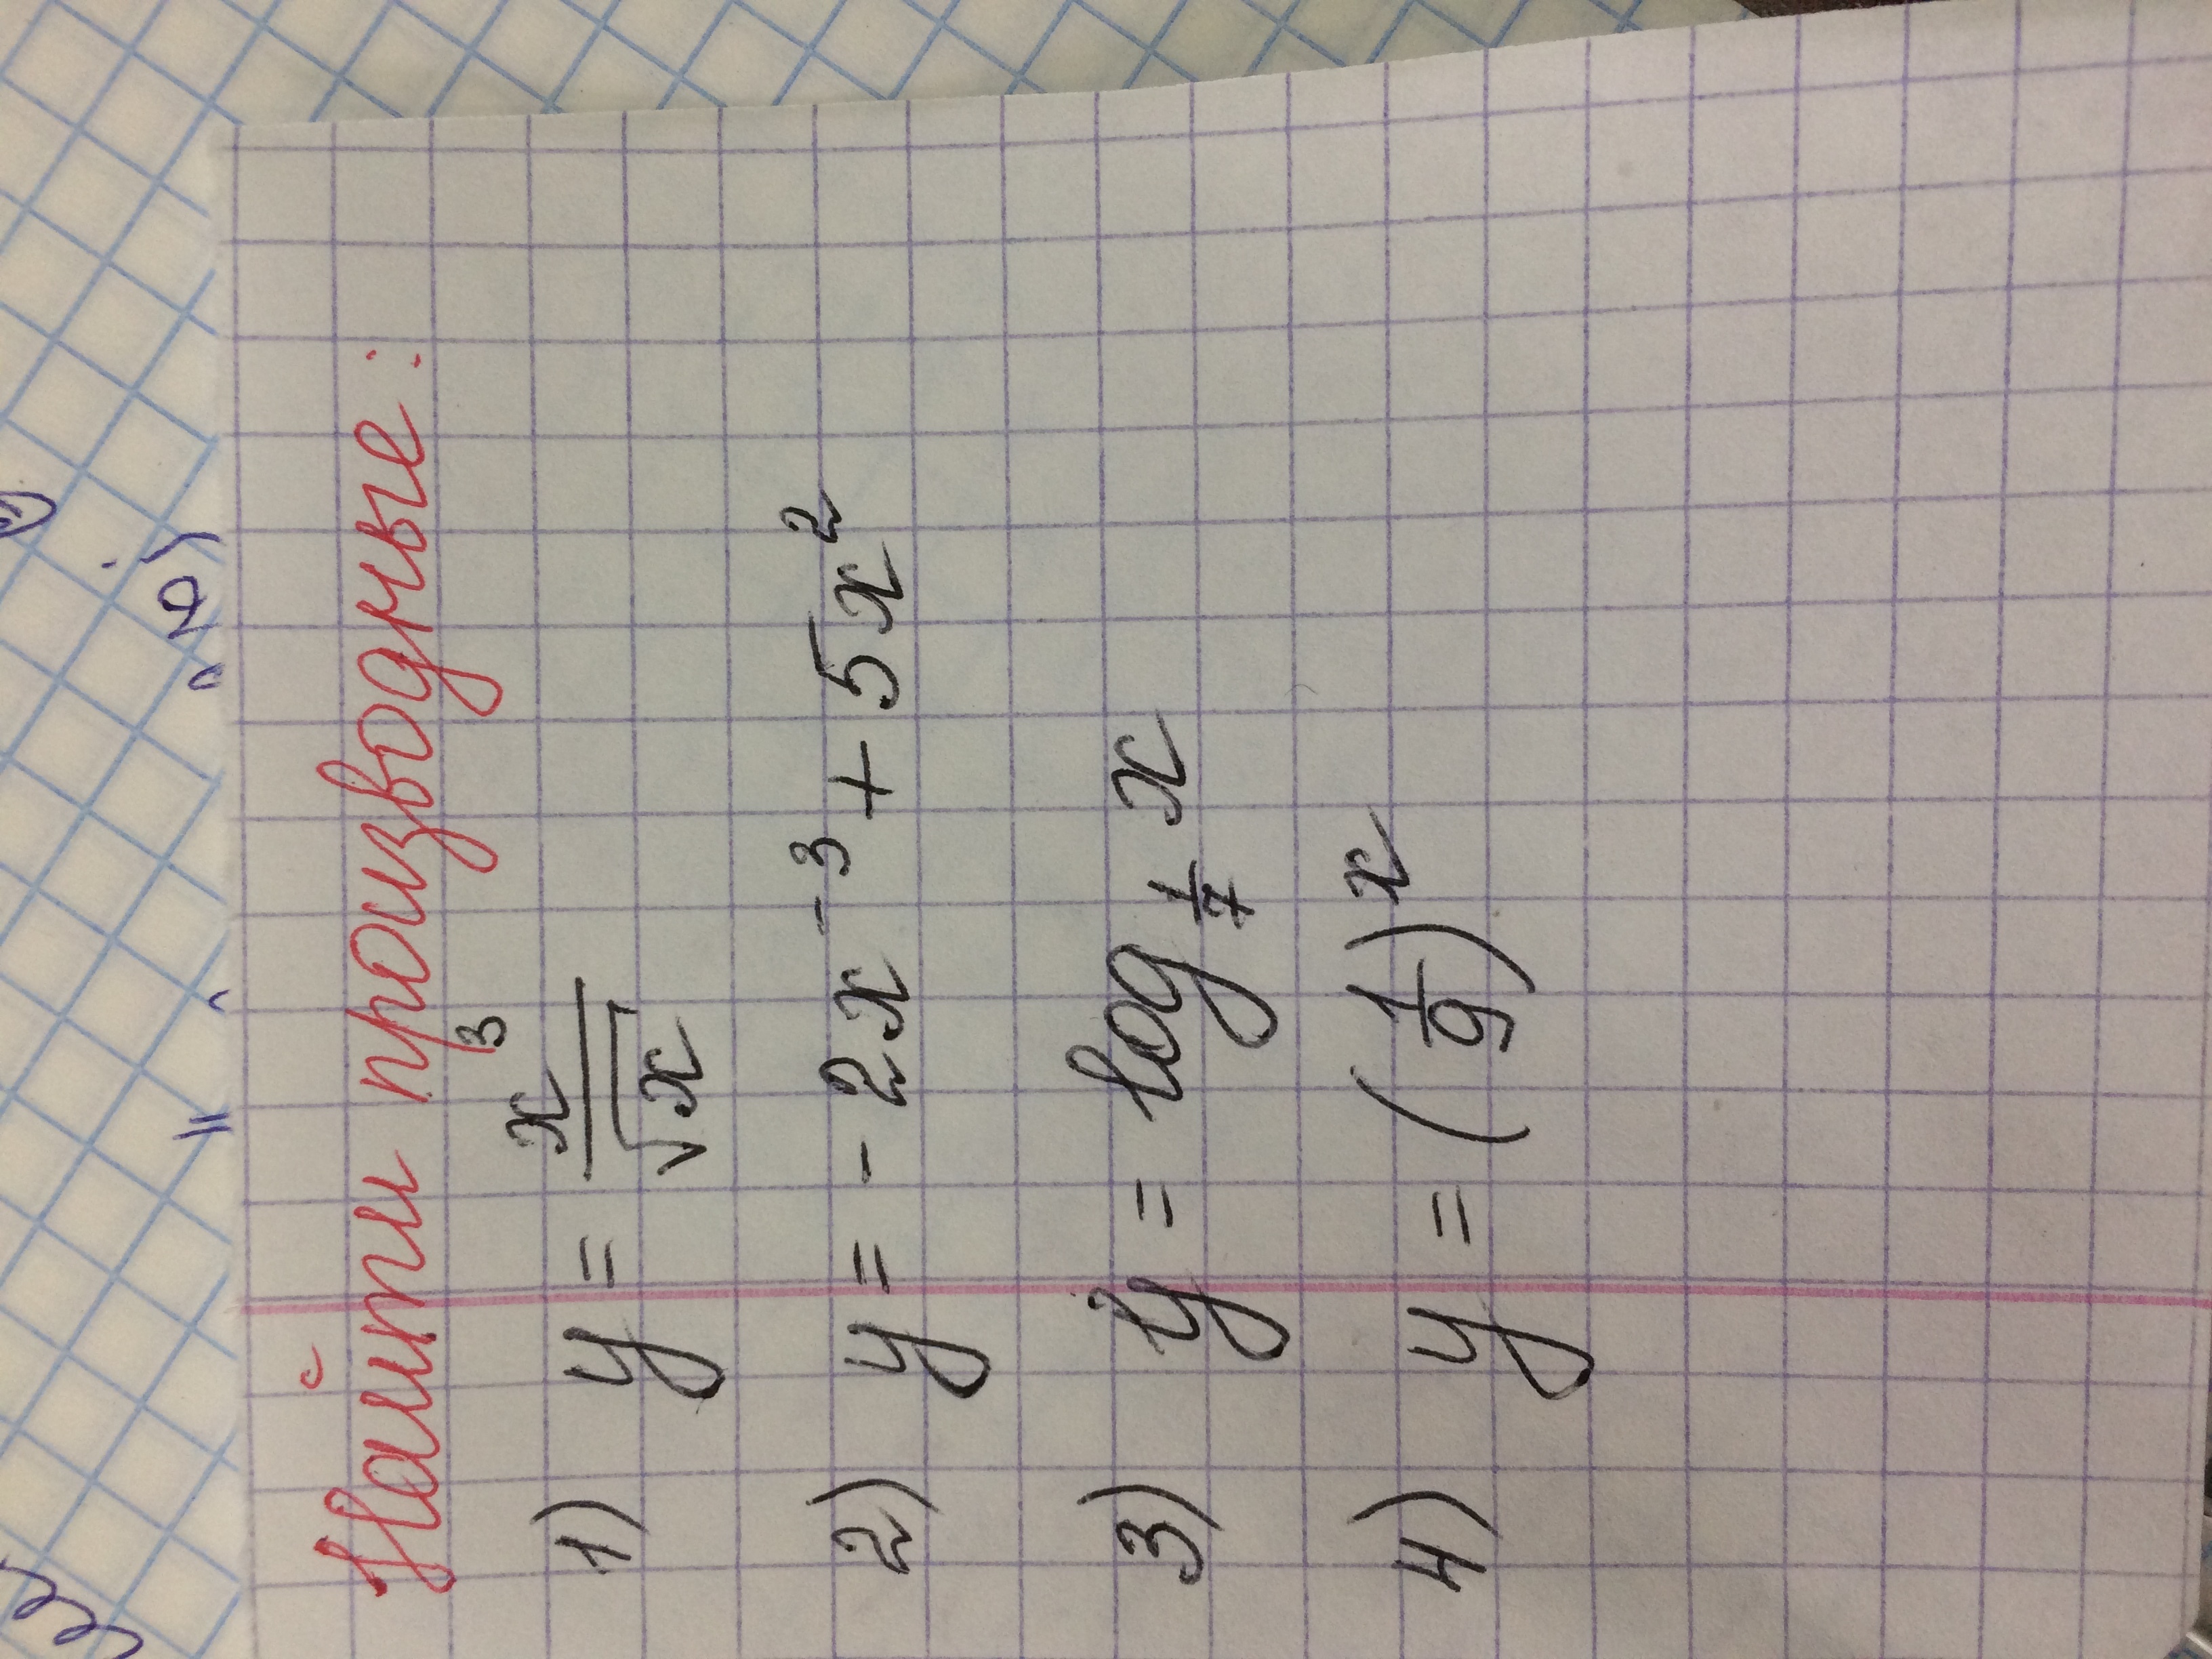 Найти производные:
1) y = x³/√x
2) y = - 2x⁻³ + 5x²
3) y = log_{1/7} x
4) y = (1/9)ˣ